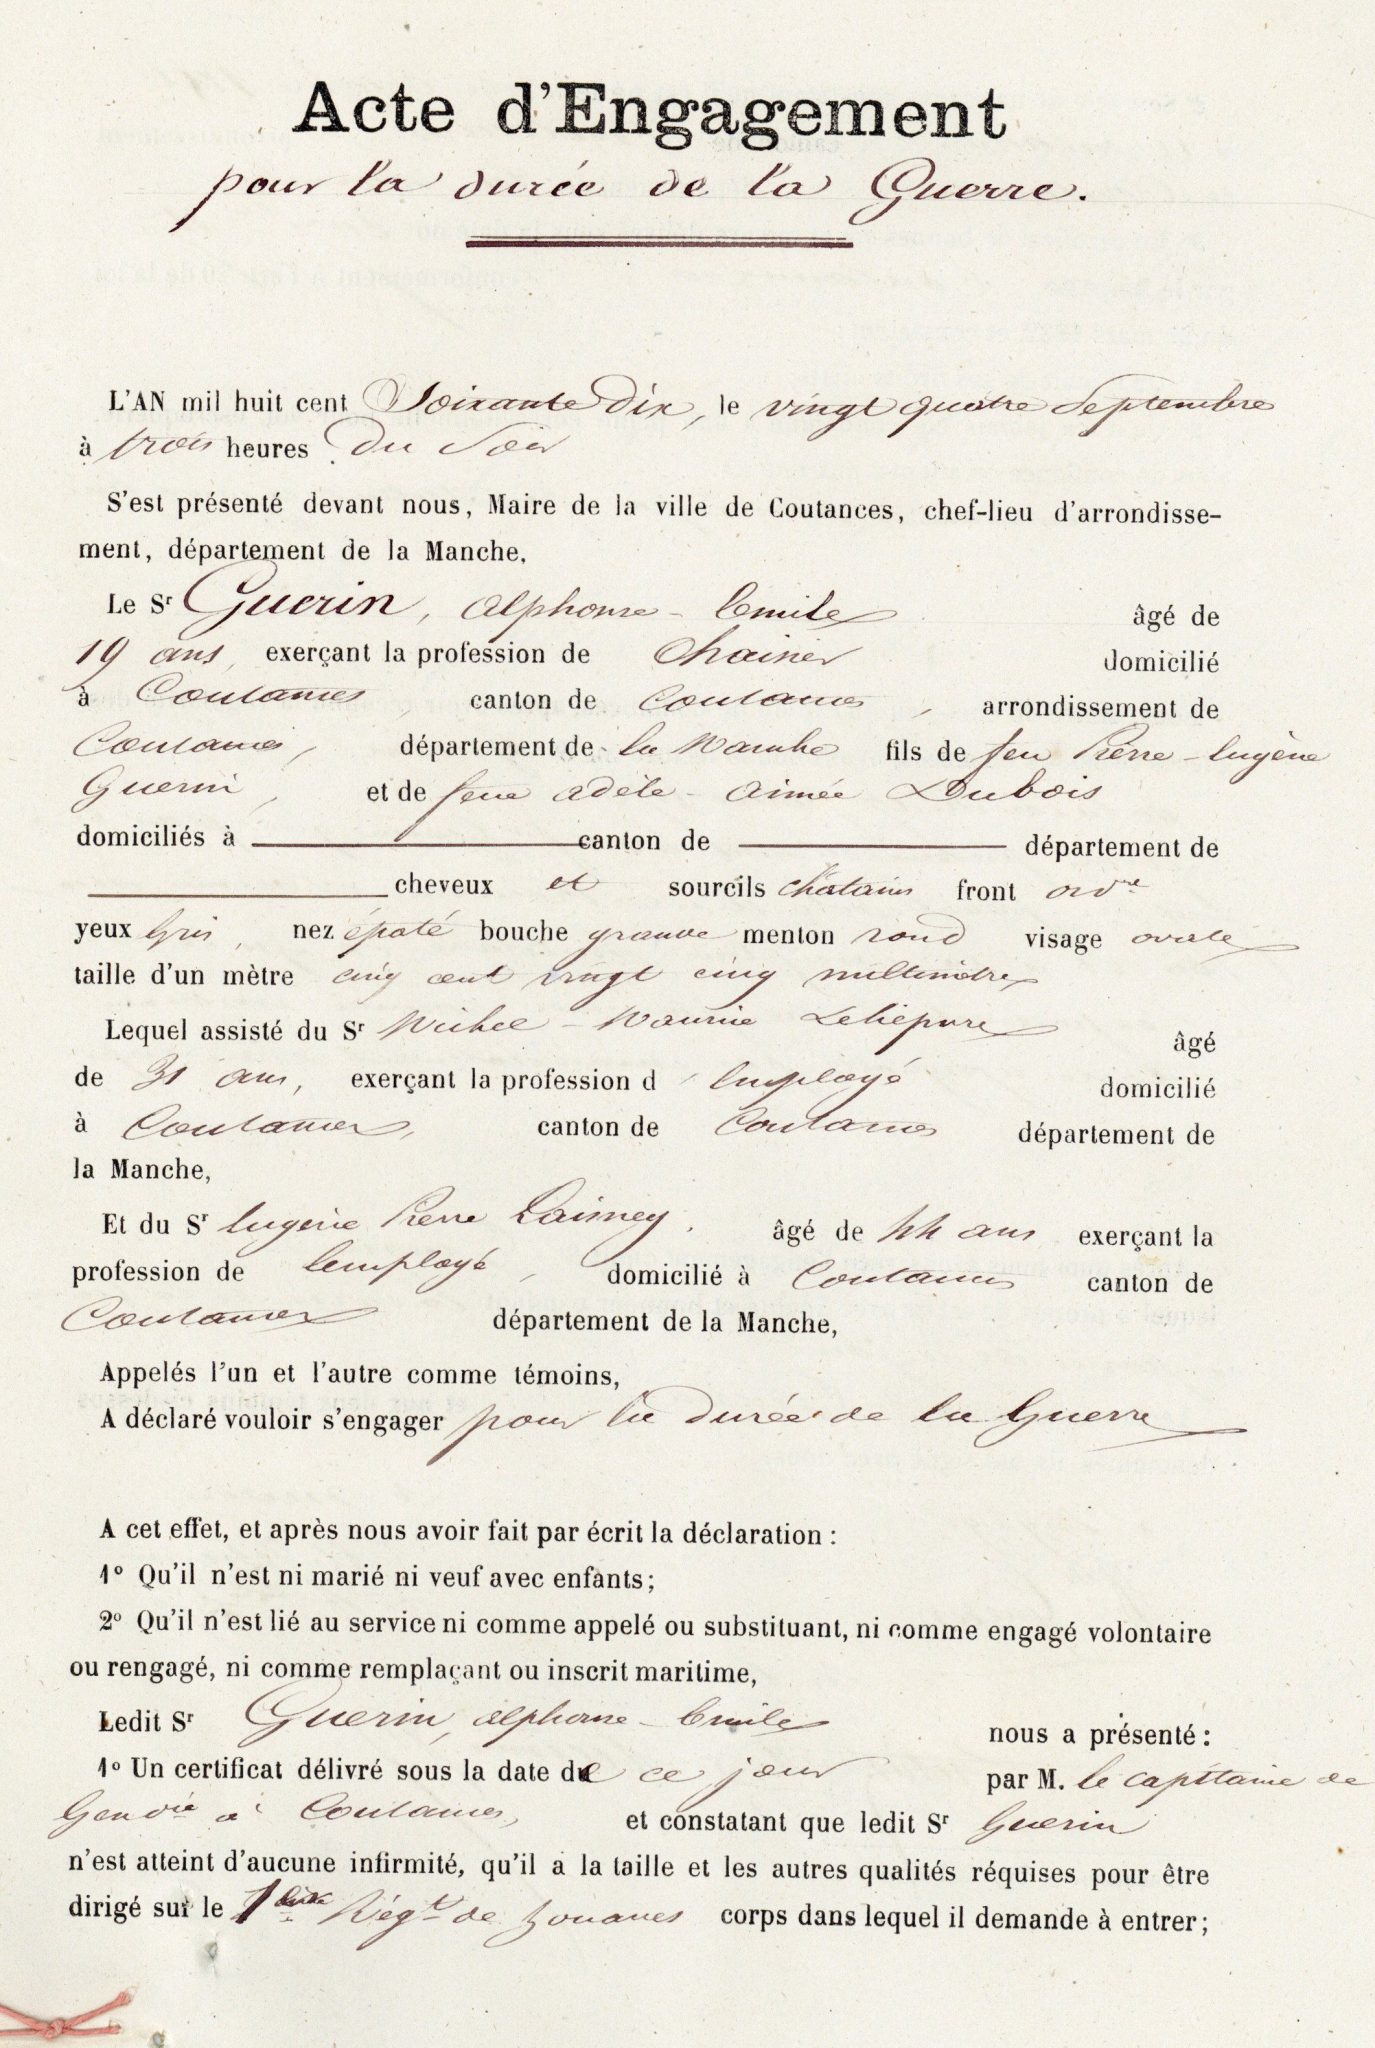 Acte d'Engagement
pour la durée de la Guerre.
L'AN mil huit cent Soixante Dix, le vingt quatre Septembre
à trois heures du Soir
S'est présenté devant nous, Maire de la ville de Coutances, chef-lieu d'arrondisse-
ment, département de la Manche,
Le Sr Guerin, alphonse - Emile âgé de
19 ans, exerçant la profession de Chainier domicilié
à Coutances, canton de Coutances, arrondissement de
Coutances, département de la Manche fils de feu Pierre - Eugène
Guerin, et de feue adèle - aimée Dubois
domiciliés à canton de département de
cheveux et sourcils chatains front ordre
yeux Gris, nez épaté bouche grande menton rond visage ovale
taille d'un mètre cinq cent vingt cinq millimètres
Lequel assisté du Sr Michel - Maurice Lelièpvre âgé
de 31 ans, exerçant la profession d'Employé domicilié
à Coutances, canton de Coutances département de
la Manche,
Et du Sr Eugène Pierre Laisney, âgé de 44 ans exerçant la
profession de Employé, domicilié à Coutances canton de
Coutances département de la Manche,
Appelés l'un et l'autre comme témoins,
A déclaré vouloir s'engager pour la durée de la Guerre
A cet effet, et après nous avoir fait par écrit la déclaration :
1º Qu'il n'est ni marié ni veuf avec enfants ;
2º Qu'il n'est lié au service ni comme appelé ou substituant, ni comme engagé volontaire
ou rengagé, ni comme remplaçant ou inscrit maritime,
Ledit Sr Guerin, alphonse - Emile nous a présenté :
1º Un certificat délivré sous la date de ce jour par M. le capitaine de
Gendie à Coutances, et constatant que ledit Sr Guerin
n'est atteint d'aucune infirmité, qu'il a la taille et les autres qualités réquises pour être
dirigé sur le Régt de Zouaves corps dans lequel il demande à entrer ;